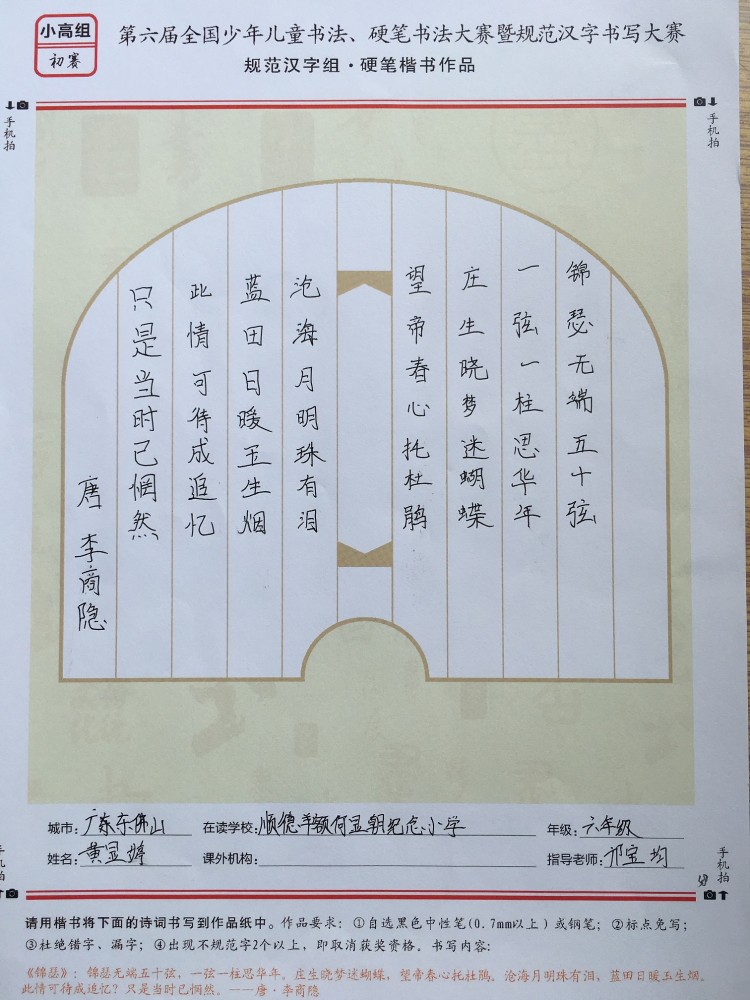 小高组
初赛
第六届全国少年儿童书法、硬笔书法大赛暨规范汉字书写大赛
规范汉字组·硬笔楷书作品
手机拍
手机拍
锦瑟无端五十弦
一弦一柱思华年
庄生晓梦迷蝴蝶
望帝春心托杜鹃
沧海月明珠有泪
蓝田日暖玉生烟
此情可待成追忆
只是当时已惘然
唐 李商隐
城市:广东佛山 在读学校:顺德羊额何显朝纪念小学 年级:六年级
姓名:黄显婷 课外机构: 指导老师:邝宝均
手机拍
手机拍
请用楷书将下面的诗词书写到作品纸中。作品要求:①自选黑色中性笔(0.7mm以上)或钢笔;②标点免写;
③杜绝错字、漏字;④出现不规范字2个以上,即取消获奖资格。书写内容:
《锦瑟》:锦瑟无端五十弦,一弦一柱思华年。庄生晓梦迷蝴蝶,望帝春心托杜鹃。沧海月明珠有泪、蓝田日暖玉生烟。
此情可待成追忆?只是当时已惘然。——唐·李商隐